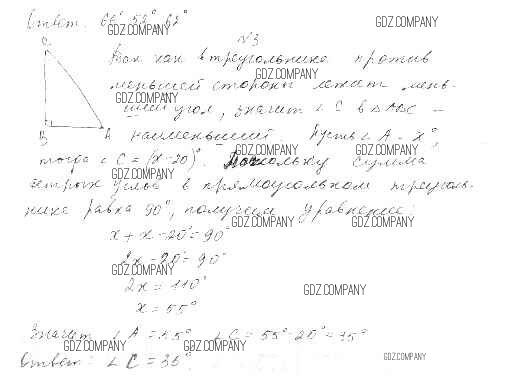 Ответ: 66°, 52°, 62°
GDZ.COMPANY GDZ.COMPANY
№3
C
Так как в треугольнике против
GDZ.COMPANY
меньшей стороны лежит мень-
GDZ.COMPANY
ший угол, значит ∠C в △ABC –
B A наименьший. Пусть ∠A - x°,
GDZ.COMPANY GDZ.COMPANY
тогда ∠C = (x-20)°. Поскольку сумма
GDZ.COMPANY
острых углов в прямоугольном треуголь-
нике равна 90°, получим уравнение:
GDZ.COMPANY GDZ.COMPANY
x + x - 20° = 90°
2x - 20° = 90°
GDZ.COMPANY
2x = 110°
GDZ.COMPANY
x = 55°
Значит ∠A = 55° ∠C = 55° - 20° = 35°
GDZ.COMPANY GDZ.COMPANY
Ответ: ∠C = 35°.
GDZ.COMPANY